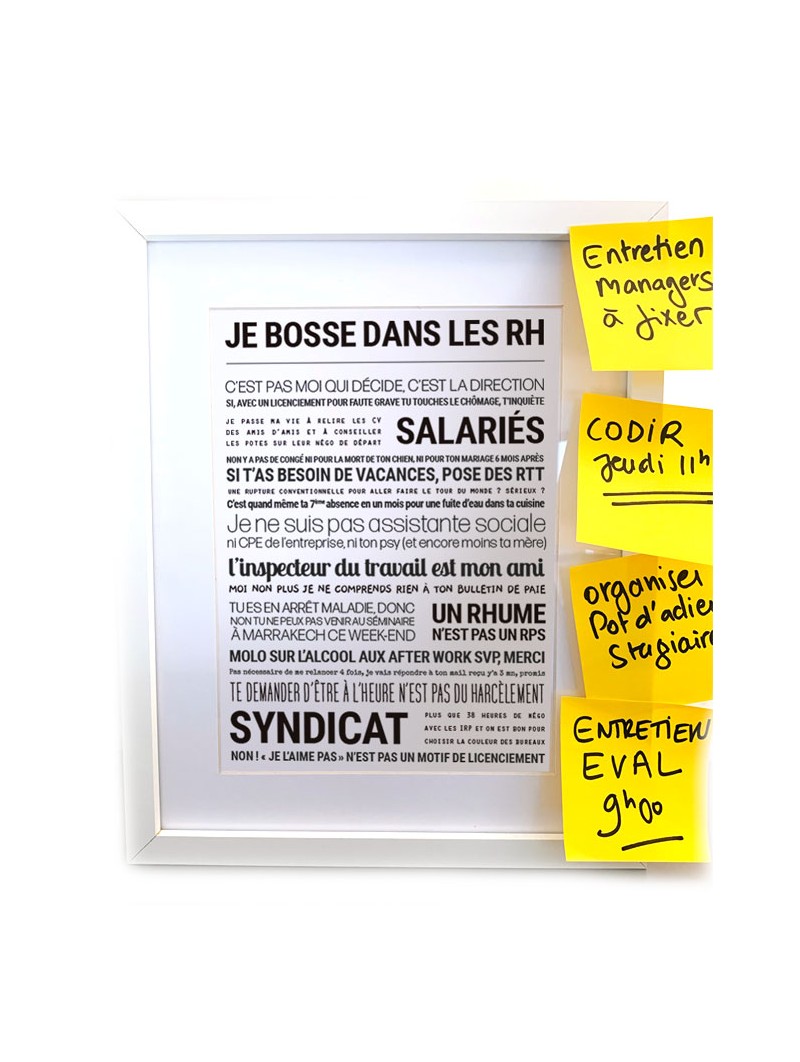 JE BOSSE DANS LES RH
C'EST PAS MOI QUI DÉCIDE, C'EST LA DIRECTION
SI, AVEC UN LICENCIEMENT POUR FAUTE GRAVE TU TOUCHES LE CHÔMAGE, T'INQUIÈTE
JE PASSE MA VIE À RELIRE LES CV
DES AMIS D'AMIS ET À CONSEILLER
LES POTES SUR LEUR NÉGO DE DÉPART
SALARIÉS
NON Y A PAS DE CONGÉ NI POUR LA MORT DE TON CHIEN, NI POUR TON MARIAGE 6 MOIS APRÈS
SI T'AS BESOIN DE VACANCES, POSE DES RTT
UNE RUPTURE CONVENTIONNELLE POUR ALLER FAIRE LE TOUR DU MONDE ? SÉRIEUX ?
C'est quand même ta 7ème absence en un mois pour une fuite d'eau dans ta cuisine
Je ne suis pas assistante sociale
ni CPE de l'entreprise, ni ton psy (et encore moins ta mère)
l'inspecteur du travail est mon ami
MOI NON PLUS JE NE COMPRENDS RIEN À TON BULLETIN DE PAIE
TU ES EN ARRÊT MALADIE, DONC
NON TU NE PEUX PAS VENIR AU SÉMINAIRE
À MARRAKECH CE WEEK-END
UN RHUME
N'EST PAS UN RPS
MOLO SUR L'ALCOOL AUX AFTER WORK SVP, MERCI
Pas nécessaire de me relancer 4 fois, je vais répondre à ton mail reçu y'a 3 mn, promis
TE DEMANDER D'ÊTRE À L'HEURE N'EST PAS DU HARCÈLEMENT
SYNDICAT
PLUS QUE 38 HEURES DE NÉGO
AVEC LES IRP ET ON EST BON POUR
CHOISIR LA COULEUR DES BUREAUX
NON ! « JE L'AIME PAS » N'EST PAS UN MOTIF DE LICENCIEMENT
Entretien
managers
à fixer
CODIR
Jeudi 11h
organiser
Pot d'adieu
Stagiaire
ENTRETIEN
EVAL
9h00